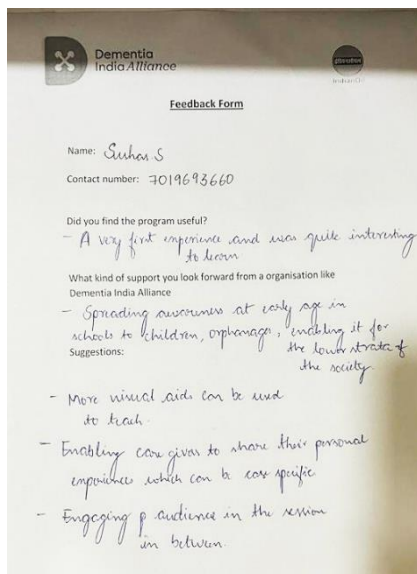 Dementia
India Alliance
IndianOil
Feedback Form
Name: Suhas S
Contact number: 7019693660
Did you find the program useful?
- A very first experience and was quite interesting
to learn
What kind of support you look forward from a organisation like
Dementia India Alliance
- Spreading awareness at early age in
schools to children, orphanage, enabling it for
the lower strata of
the society.
Suggestions:
- More visual aids can be used
to teach.
- Enabling care givers to share their personal
experience which can be case specific
- Engaging audience in the session
in between.